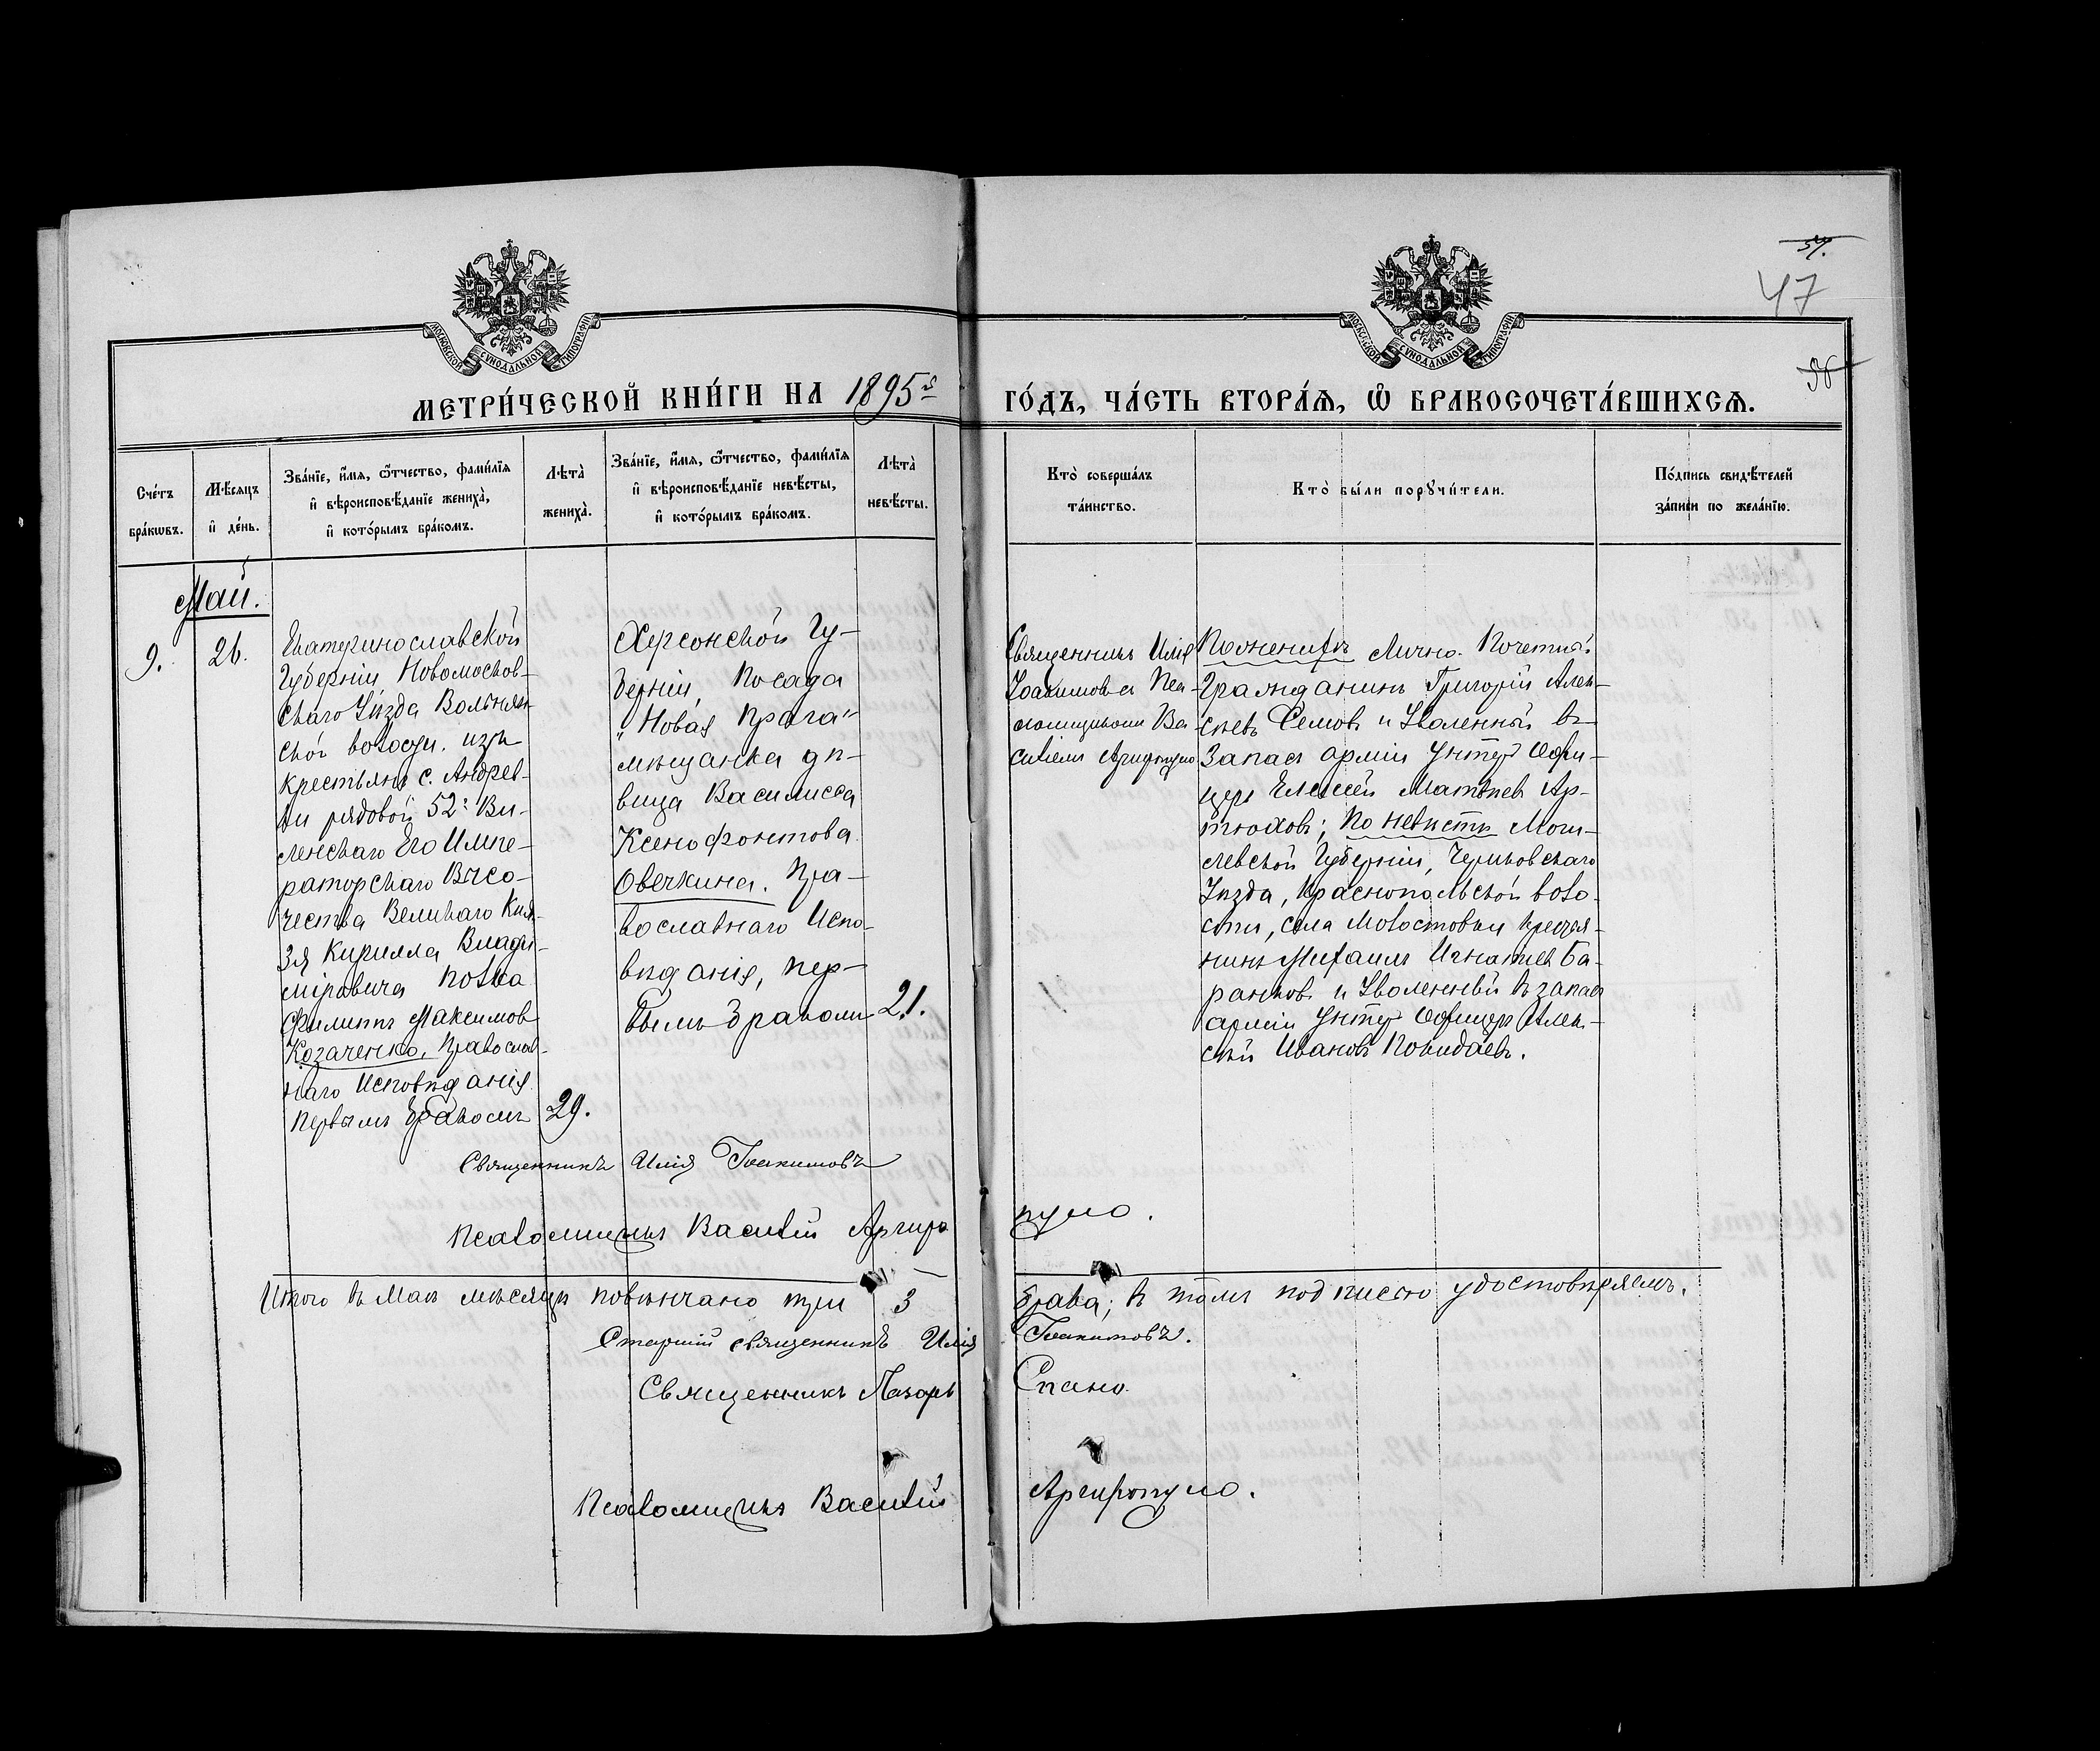 57.
47
56
МОСКОВСКОЙ СУНОДАЛЬНОЙ ТИПОГРАФІИ
МОСКОВСКОЙ СУНОДАЛЬНОЙ ТИПОГРАФІИ
МЕТРИ́ЧЕСКОЙ КНИ́ГИ НА 1895й ГО́ДЪ, ЧА́СТЬ ВТОРА́Ѧ, Ѽ БРАКОСОЧЕТА́ВШИХСѦ.
Сче́тъ
бра́кѡвъ.
Мѣ́сяцъ
и҆ де́нь.
Зва́нїе, и҆́мя, ѻ҆́тчество, фами́лїя
и҆ вѣроисповѣ́данїе жениха̀,
и҆ кото́рымъ бра́комъ.
Лѣта̀
жениха̀.
Зва́нїе, и҆́мя, ѻ҆́тчество, фами́лїя
и҆ вѣроисповѣ́данїе невѣ́сты,
и҆ кото́рымъ бра́комъ.
Лѣта̀
невѣ́сты.
Кто̀ соверша́лъ
та́инство.
Кто̀ бы́ли порꙋчи́тели.
По́дпись свидѣ́телей
за́писи по жела́нїю.
Май.
9.
26.
Екатеринославской
Губерніи Новомосков-
скаго Уѣзда Вольнян-
ской волости. изъ
крестьянъ с. Андреев-
ки рядовой 52го Ви-
ленскаго Его Импе-
раторскаго Высо-
чества Великаго Кня-
зя Кирилла Влади-
міровича полка
Филиппъ Максимовъ
Козаченко, Православ-
наго Исповѣданія
первымъ бракомъ
29.
Херсонской Гу-
берніи, Посада
"Новая Прага"
мѣщанка дѣ-
вица Василисса
Ксенофонтова
Овечкина. Пра-
вославнаго Испо-
вѣданія, пер-
вымъ бракомъ
21.
Священникъ Илія
Іоакимовъ и Пса-
ломщикомъ Ва-
силіемъ Аргиропуло
По женихѣ Лично-Почетный
Гражданинъ Григорій Алек-
сѣевъ Семовъ и Уволенный въ
Запасъ арміи Унтеръ Офи-
церъ Елисей Матвѣевъ Ар-
тюховъ; По невѣстѣ Моги-
левской Губерніи, Чериковскаго
Уѣзда, Краснопольской воло-
сти, села Молостовки крестья-
нинъ Михаилъ Игнатьевъ Ба-
ранковъ и Уволенный въ запасъ
арміи Унтеръ Офицеръ Алек-
сѣй Ивановъ Повидаевъ.
Священникъ Илія Іоакимовъ
Псаломщикъ Василій Аргиропуло.
Итого въ Маѣ мѣсяцѣ повѣнчано три 3 брака; въ томъ подписью удостовѣряемъ.
Старшій священникъ Илія Іоакимовъ.
Священникъ Лазорь Спано
Псаломщикъ Василій Аргиропуло.